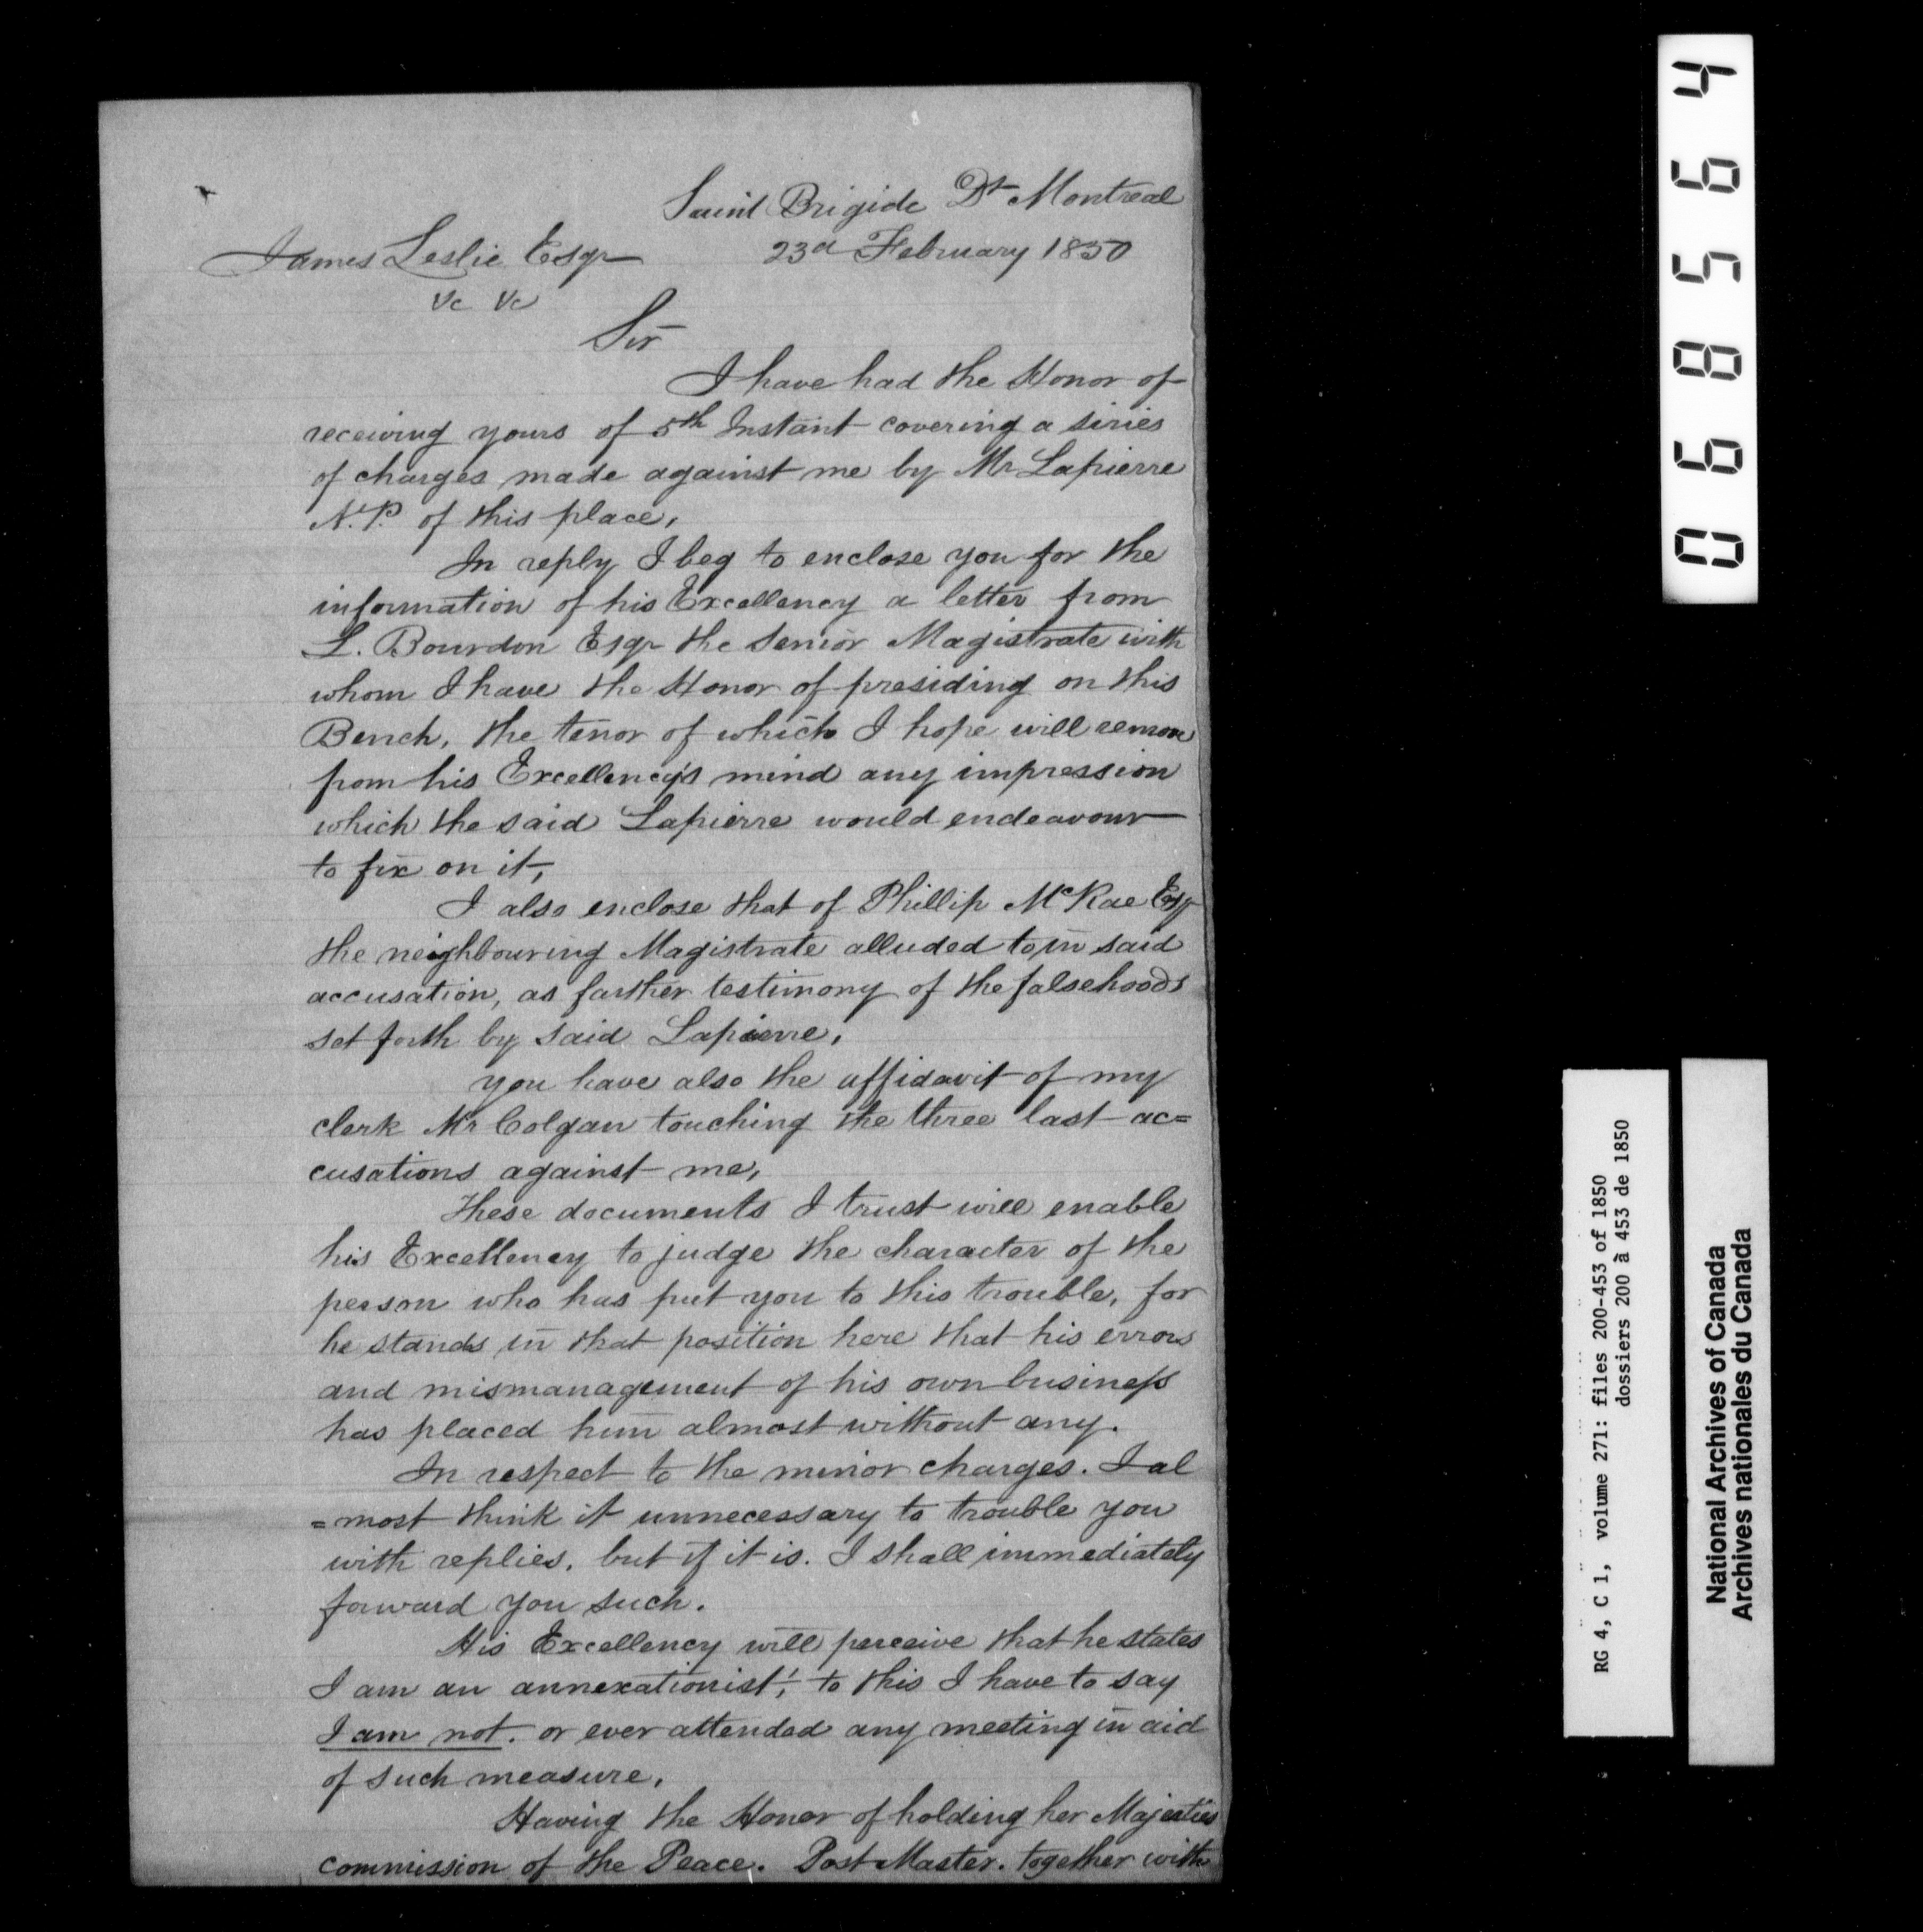 Saint Brigide Dt Montreal
James Leslie Esqr 23d February 1850
&c &c
Sir
I have had the Honor of
receiving yours of 5th Instant covering a siries
of charges made against me by Mr Lapierre
N.P. of this place,
In reply I beg to enclose you for the
information of his Excellency a letter from
L. Bourdon Esqr the senior Magistrate with
whom I have the Honor of presiding on this
Bench, the tenor of which I hope will remove
from his Excellency's mind any impression
which the said Lapierre would endeavour
to fix on it,
I also enclose that of Phillip McRae Esqr
the neighbouring Magistrate alluded to in said
accusation, as farther testimony of the falsehoods
set forth by said Lapierre,
You have also the affidavit of my
clerk Mr Colgan touching the three last ac=
cusations against me,
These documents I trust will enable
his Excellency to judge the character of the
person who has put you to this trouble, for
he stands in that position here that his errors
and mismanagement of his own business
has placed him almost without any.
In respect to the minor charges. I al
=most think it unnecessary to trouble you
with replies, but if it is. I shall immediately
forward you such.
His Excellency will perceive that he states
I am an annexationist; to this I have to say
I am not. or ever attended any meeting in aid
of such measure,
Having the Honor of holding her Majesties
commission of the Peace. Post Master. together with
068564
RG 4, C 1, volume 271: files 200-453 of 1850
dossiers 200 à 453 de 1850
National Archives of Canada
Archives nationales du Canada